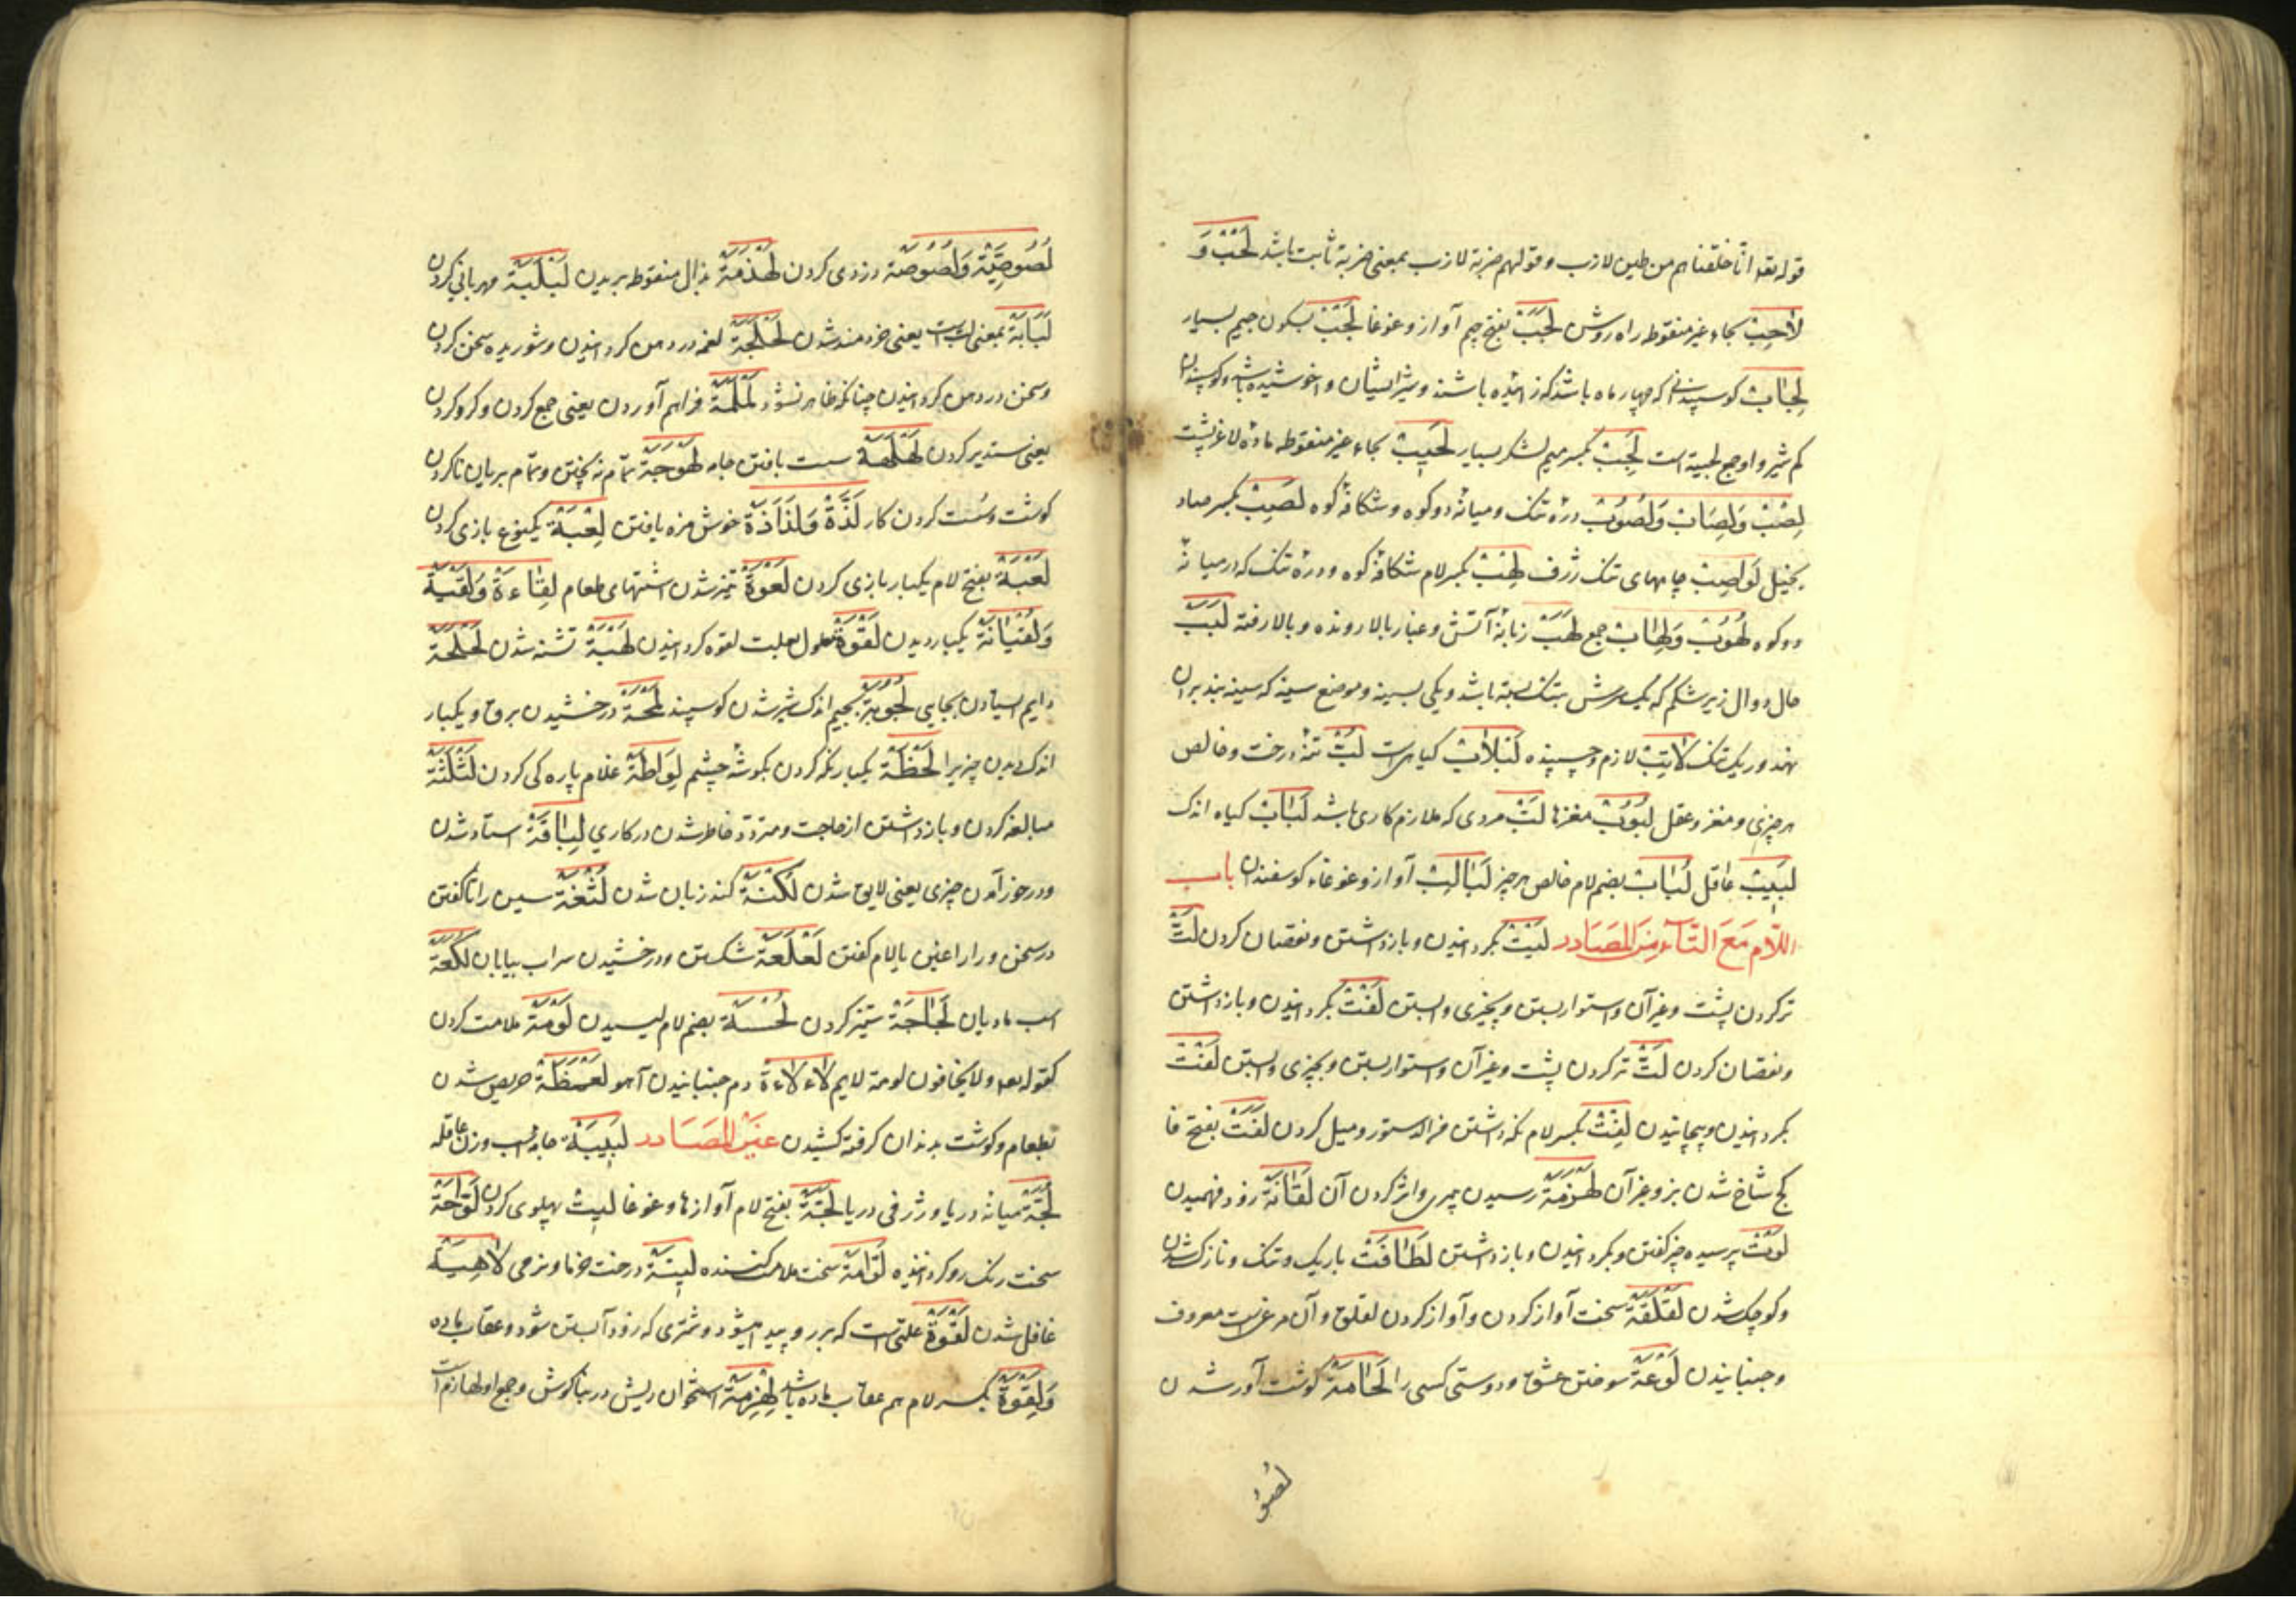 قوله تعالی انّا خلقناهم من طین لازب وقولهم ضربة لازب بمعنی ضربة ثابت باشد لَحْبٌ وَ
لاحِبٌ بحاء غیر منقوطه راه روشن لَجَبٌ بفتح جیم آواز وغوغا لَجْبٌ بسکون جیم بسیار
لِجَابٌ کوسپندانی که چهار ماه باشد که زائیده باشند وشیر ایشان واخوشیده باشد وکوسپندان
کم شیر واو جمع لجبة است لَجِبٌ بکسر جیم لشکر بسیار لَحِیبٌ بحاء غیر منقوطه مادهٔ لاغر پشت
لِصْبٌ وَلِصَابٌ وَلُصُوبٌ درهٔ تنک ومیانهٔ دو کوه وشکافهٔ کوه لَصِبٌ بکسر صاد
بخیل لَوَاصِبُ چاههای تنک ژرف لِهْبٌ بکسر لام شکافهٔ کوه ودرهٔ تنک که در میانهٔ
دو کوه لُهُوبٌ وَلِهَابٌ جمع لَهَبٌ زبانهٔ آتش وغبار بالا رونده وبالا رفته لَبَبٌ
حال دوال زیر شکم که یک سرش بتنک بسته باشد ویکی بسینه وموضع سینه که سینه بند بران
نهند وریک تنک لَاتِبٌ لازم وچسپنده لَبْلَابٌ کیاهی است لُبٌّ تنهٔ درخت وخالص
هر چیزی ومغز وعقل لُبُوبٌ مغزها لَبٌّ مردی که ملازم کاری باشد لَبَابٌ کیاه اندک
لَبِیبٌ عاقل لُبَابٌ بضم لام خالص هر چیز لَبَالِبُ آواز وغوغاء کوسفندان باب
اللّام مَعَ التّآءِ مِنَ المَصَادر لَیْتٌ بگردانیدن وبازداشتن ونقصان کردن لَتٌّ
تر کردن پشت وغیر آن واستوار بستن وبچیزی وابستن لَفْتٌ بگردانیدن وبازداشتن
ونقصان کردن لَتٌّ تر کردن پشت وغیر آن واستوار بستن وبچیزی وابستن لَفْتٌ
بگردانیدن وپیچانیدن لِفْتٌ بکسر لام نکه داشتن فرا ستور ومیل کردن لَفَتٌ بفتح فا
کج شاخ شدن بز وغیر آن لَهْزَمَةٌ رسیدن پیری واثر کردن آن لَقَانَةٌ زود فهمیدن
لَوْتٌ پرسیده خبر کفتن وبگردانیدن وبازداشتن لَطَافَتٌ باریک وتنک ونازک شدن
وکوچک شدن لَقْلَقَةٌ سخت آواز کردن وآواز کردن لقلق وآن مرغی است معروف
وجنبانیدن لَوْعَةٌ سوختن عشق ودوستی کسی را لَحَامَةٌ کوشت آور شدن
لصو
لُصُوصِیَّةٌ وَلُصُوصَةٌ دزدی کردن لَهْذَمَةٌ بذال منقوطه بریدن لَبْلَبَةٌ مهربانی کردن
لَبَابَةٌ بمعنی لب است یعنی خردمند شدن لَجْلَجَةٌ لقمه در دهن کردانیدن وشوریده سخن کردن
وسخن در دهن کردانیدن چنانکه ظاهر نشود لَمْلَمَةٌ فراهم آوردن یعنی جمع کردن وکرد کردن
یعنی مستدیر کردن لَهْلَهَةٌ سست بافتن جامه لَهْوَجَةٌ تمام نه پختن وتمام بریان ناکردن
کوشت وسُست کردن کار لَذَّةٌ وَلَذَاذَةٌ خوش مزه یافتن لِعْبَةٌ یکنوع بازی کردن
لَعْبَةٌ بفتح لام یکبار بازی کردن لَعْوَةٌ تیز شدن اشتهای طعام لِقَاءَةٌ وَلَقْیَةٌ
وَلِقْیَانَةٌ یکبار دیدن لَقْوَةٌ معلول بعلت لقوه کردانیدن لَهْبَةٌ تشنه شدن لَحْلَحَةٌ
دایم ایستادن بجایی لُجُوبَةٌ بجیم اندک شیر شدن کوسپند لَمْحَةٌ درخشیدن برق ویکبار
اندک دیدن چیزیرا لَحْظَةٌ یکبار نکه کردن بکوشهٔ چشم لِوَاطَةٌ غلام پاره کی کردن لَثْلَثَةٌ
مبالغه کردن وبازداشتن از حاجت ومتردّد خاطر شدن در کاری لَبَاقَةٌ استاد شدن
ودر خور آمدن چیزی یعنی لایق شدن لُکْنَةٌ کند زبان شدن لُثْغَةٌ سین را ثا کفتن
در سخن ورا را غین یا لام کفتن لَعْلَعَةٌ شکستن ودرخشیدن سراب بیابان لَکْعَةٌ
اسب مادیان لَجَاجَةٌ ستیز کردن لُحْسَةٌ بضم لام لیسیدن لَوْمَةٌ ملامت کردن
کقوله تعالی ولا یخافون لومة لایم لَأْلَأَةٌ دم جنبانیدن آهو لَعْمَظَةٌ حریص شدن
بطعام وکوشت بدندان کرفته کشیدن غیر المَصَادر لَبِیبَةٌ جامهٔ لب وزن عاقله
لُجَّةٌ میانهٔ دریا وژرفی دریا لَجَّةٌ بفتح لام آوازها وغوغا لیث پهلوی کردن لَوَّاحَةٌ
سخت رنک رو کرداننده لَوَّامَةٌ سخت ملامت کننده لِینَةٌ درخت خرما ونرمی لَاهِیَةٌ
غافل شدن لَقْوَةٌ علتی است که بر رو پیدا میشود وشتری که زود آبستن شود وعقاب ماده
وَلِقْوَةٌ بکسر لام هم عقاب ماده باشد لِهْزِمَةٌ استخوان ریش در بناکوش وجمع او لهازم است